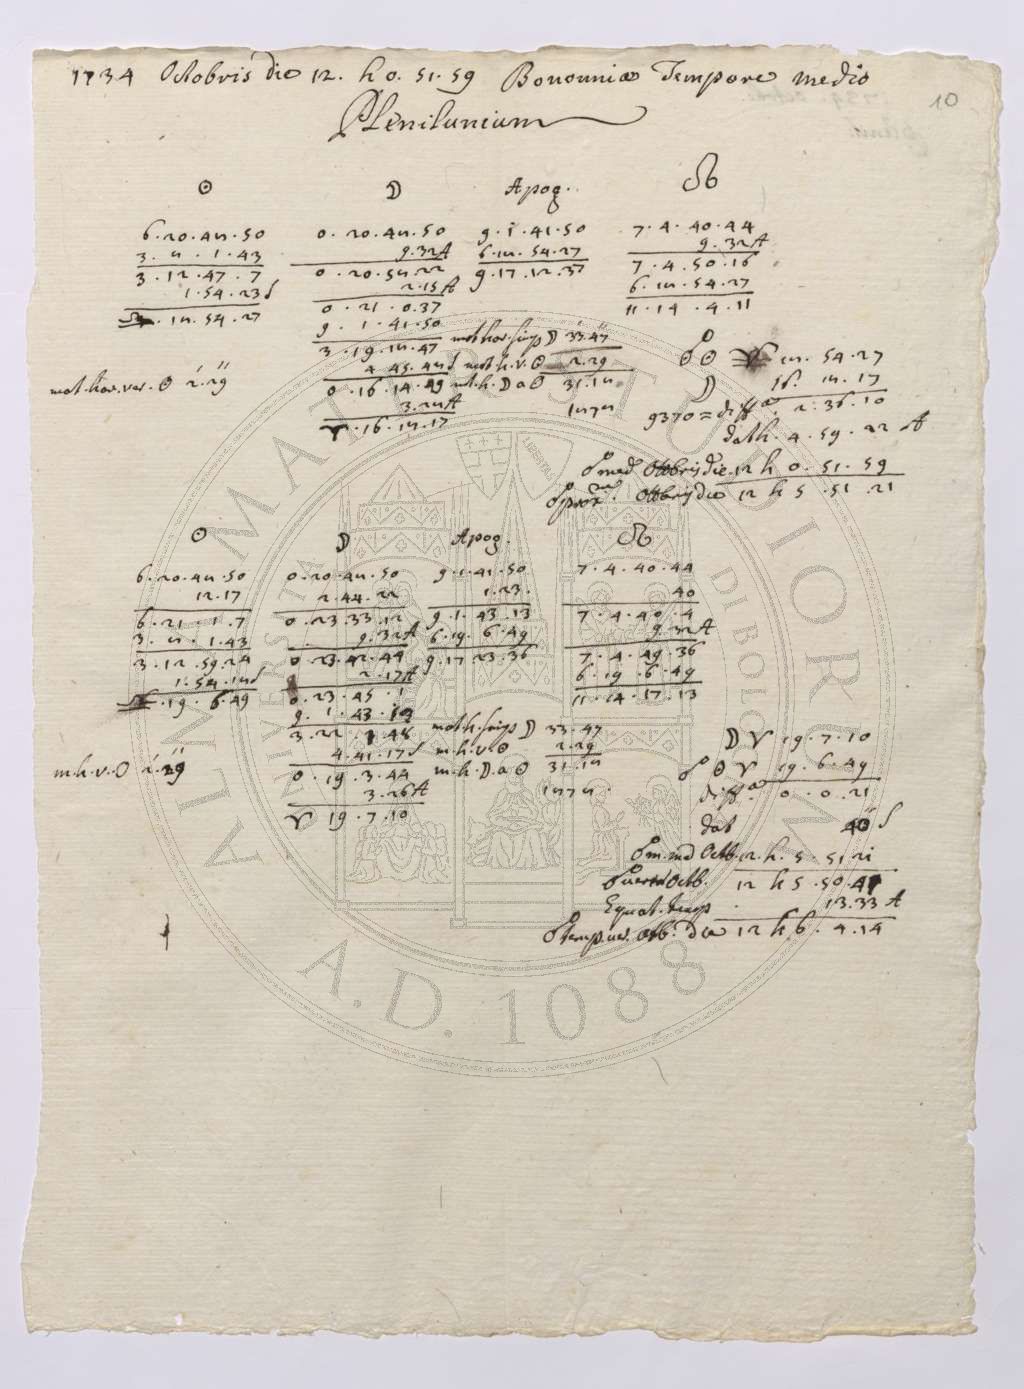 1734 Octobris die 12. h 0. 51. 59 Bononiæ Tempore medio
10
Plenilunium
☉ ☽ Apog. ☊
6.20.48.50 0.20.48.50 9.1.41.50 7.4.40.44
3.8.1.43 9.32A 6.18.54.27 9.32A
3.12.47.7 0.20.58.22 9.17.12.37 7.4.50.16
1.54.23S 2.15A 6.18.54.27
♎.18.54.27 0.21.0.37 11.14.4.11
9.1.41.50
3.19.18.47 mot hor. simp ☽ 33.47 ☍ ☉ ♈ 18.54.27
4.45.48S mot h. v. ☉ 2.29 ☽ 16.18.17
mot. hor. ver. ☉ 2.29 0.16.14.49 mt. h. ☽ a ☉ 31.18 9370 = diffa. 2.36.10
3.28A 1878 dat h. 4.59.22 A
♈.16.18.17
☍ med Octobris die 12 h 0.51.59
☍ Octobris die 12 h 5.51.21
☉ ☽ Apog. ☊
6.20.48.50 0.20.48.50 9.1.41.50 7.4.40.44
12.17 2.44.22 1.23. 40
6.21.1.7 0.23.33.12 9.1.43.13 7.4.40.4
3.8.1.43 9.32A 6.19.6.49 9.32A
3.12.59.24 0.23.42.44 9.17.23.36 7.4.49.36
1.54.18S 2.17A 6.19.6.49
♎.19.6.49 0.23.45.1 11.14.17.13
9.1.43.13
3.22.1.48 mot h. simp ☽ 33.47 ☽ ♈ 19.7.10
4.41.17S m. h. v. ☉ 2.29 ☍ ☉ ♈ 19.6.49
m. h. v. ☉ 2.29 0.19.3.44 m. h. ☽ a ☉ 31.18 diffa. 0.0.21
3.26A 1878. dat 40 S
♈ 19.7.10
Octb. 12. h. 5.51.21
☍ Octb. 12 h 5.50.41
Equat. temp 13.33 A
☍ temp. ver. Octb. die 12 h 6.4.14
ALMA MATER STUDIORUM
UNIVERSITÀ DI BOLOGNA
A.D. 1088